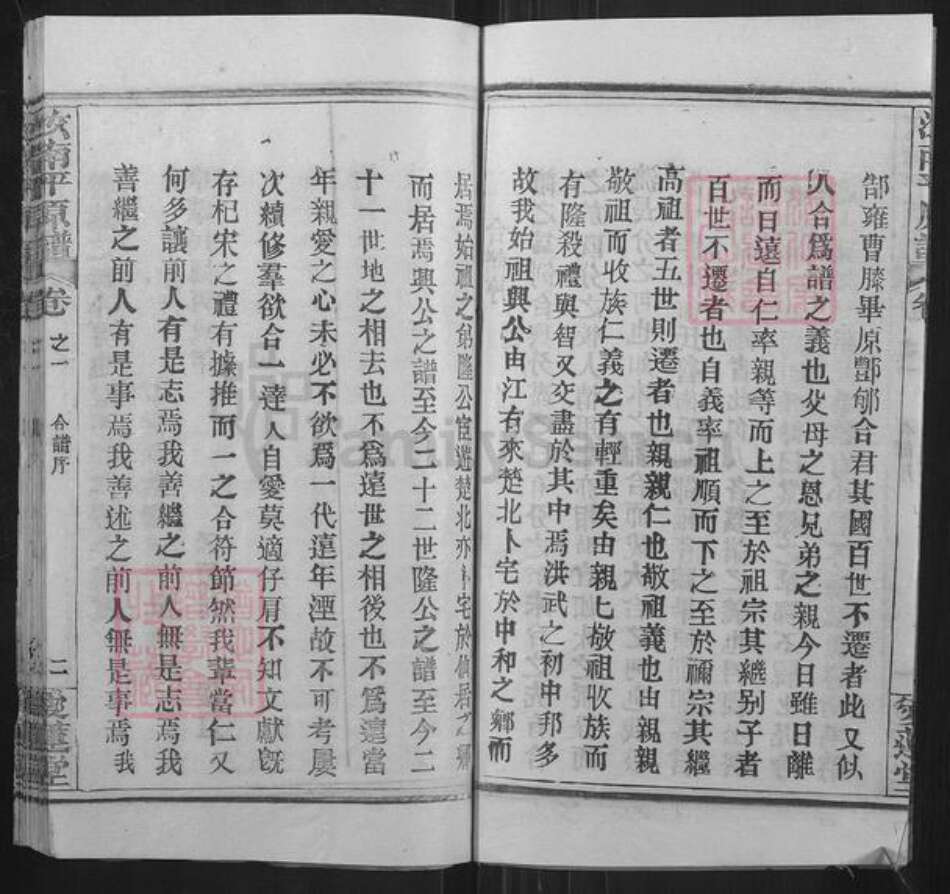 郜雍曹滕畢原酆郇合君其國百世不遷者此又似
以合爲譜之義也父母之恩兄弟之親今日雖日離
而日遠自仁率親等而上之至於祖宗其繼别子者
百世不遷者也自義率祖順而下之至於禰宗其繼
高祖者五世則遷者也親親仁也敬祖義也由親親
敬祖而收族仁義之有輕重矣由親七敬祖收族而
有隆殺禮與智又交盡於其中焉洪武之初中邦多
故我始祖興公由江右來楚北卜宅於中和之鄉而
居焉始祖之弟隆公宦遊楚北亦卜宅於仙居之鄉
而居焉興公之譜至今二十二世隆公之譜至今二
十一世地之相去也不爲遠世之相後也不爲遠當
年親愛之心未必不欲爲一代遠年湮故不可考屢
次續修羣欲合一達人自愛莫適仔肩不知文獻旣
存杞宋之禮有據推而一之合符節然我輩當仁又
何多讓前人有是志焉我善繼之前人無是志焉我
善繼之前人有是事焉我善述之前人無是事焉我
汝南平原譜 卷之一 合譜序 二 愛蓮堂